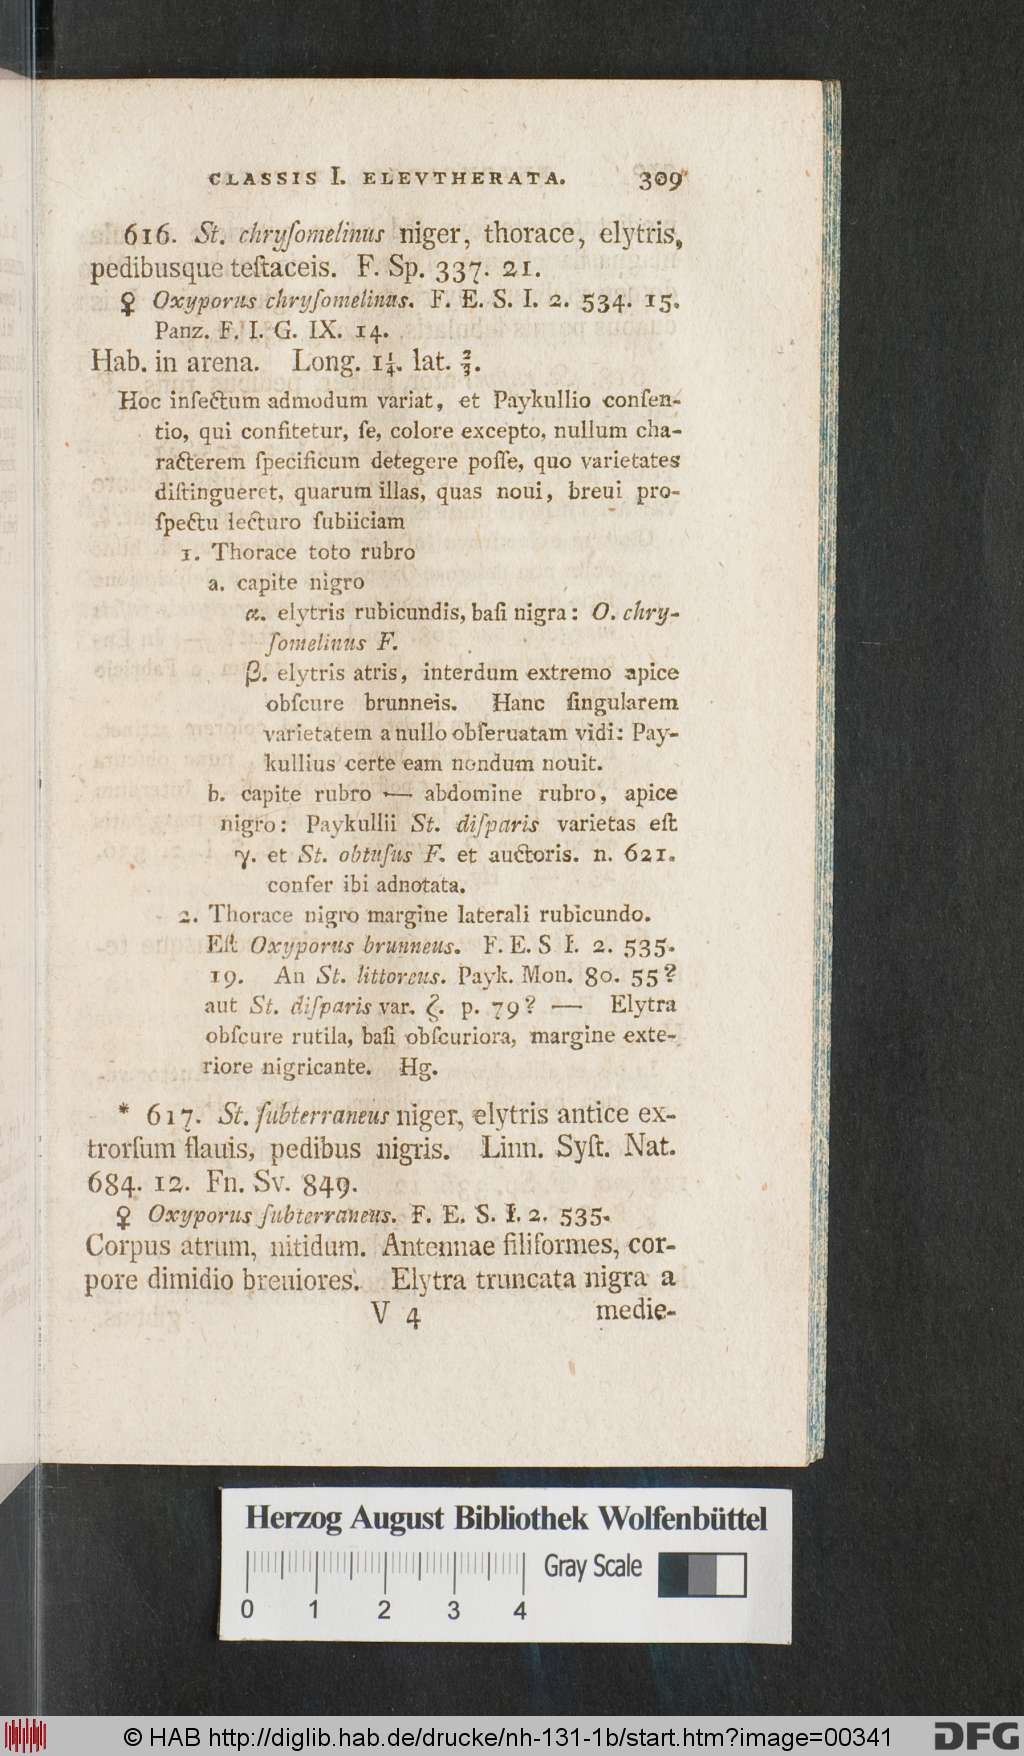 CLASSIS I. ELEVTHERATA. 309
616. St. chryſomelinus niger, thorace, elytris,
pedibusque teſtaceis. F. Sp. 337. 21.
♀ Oxyporus chryſomelinus. F. E. S. I. 2. 534. 15.
Panz. F. I. G. IX. 14.
Hab. in arena. Long. 1¼. lat. ⅔.
Hoc inſectum admodum variat, et Paykullio conſen-
tio, qui confitetur, ſe, colore excepto, nullum cha-
racterem ſpecificum detegere poſſe, quo varietates
diſtingueret, quarum illas, quas noui, breui pro-
ſpectu lecturo ſubiiciam
1. Thorace toto rubro
a. capite nigro
α. elytris rubicundis, baſi nigra: O. chry-
ſomelinus F.
β. elytris atris, interdum extremo apice
obſcure brunneis. Hanc ſingularem
varietatem a nullo obſeruatam vidi: Pay-
kullius certe eam nondum nouit.
b. capite rubro — abdomine rubro, apice
nigro: Paykullii St. diſparis varietas eſt
γ. et St. obtuſus F. et auctoris. n. 621.
confer ibi adnotata.
2. Thorace nigro margine laterali rubicundo.
Eſt Oxyporus brunneus. F. E. S I. 2. 535.
19. An St. littoreus. Payk. Mon. 80. 55?
aut St. diſparis var. ζ. p. 79? — Elytra
obſcure rutila, baſi obſcuriora, margine exte-
riore nigricante. Hg.
* 617. St. ſubterraneus niger, elytris antice ex-
trorſum flauis, pedibus nigris. Linn. Syſt. Nat.
684. 12. Fn. Sv. 849.
♀ Oxyporus ſubterraneus. F. E. S. I. 2. 535.
Corpus atrum, nitidum. Antennae filiformes, cor-
pore dimidio breuiores. Elytra truncata nigra a
V 4 medie-
Herzog August Bibliothek Wolfenbüttel
Gray Scale
0 1 2 3 4
© HAB http://diglib.hab.de/drucke/nh-131-1b/start.htm?image=00341
DFG